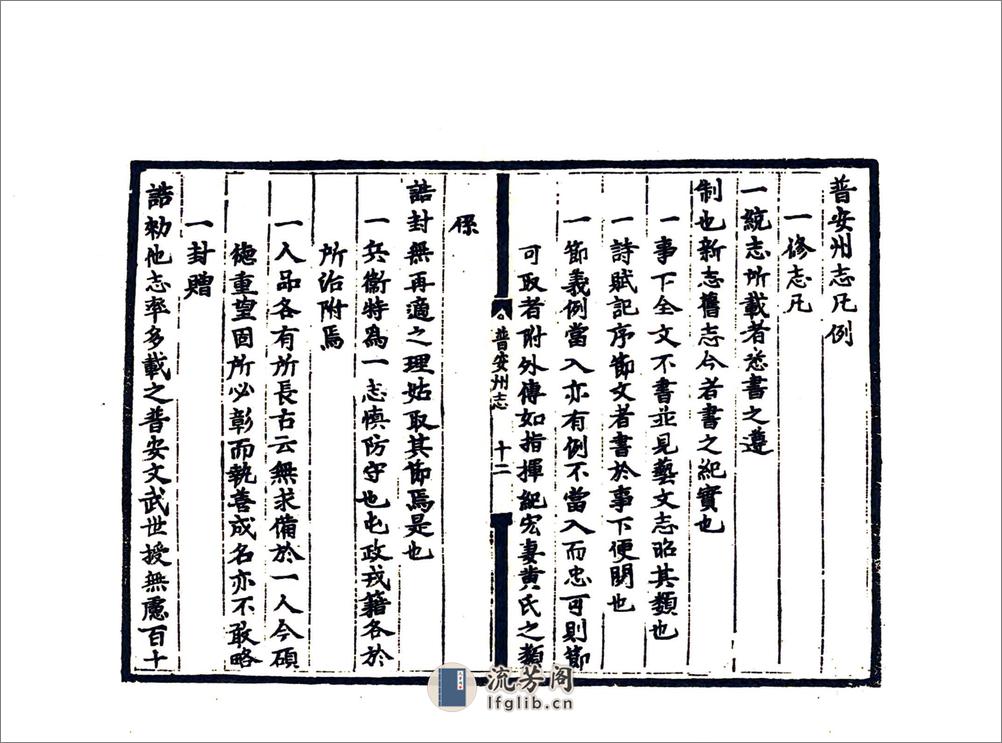 普安州志凡例
一修志凡
一統志所載者悉書之遵
制也新志舊志今者書之紀實也
一事下全文不書並見藝文志昭其類也
一詩賦記序節文者書於事下便閱也
一節義例當入亦有例不當入而忠可則節
可取者附外傳如指揮紀宏妻黄氏之類
普安州志 十二
係
誥封無再適之理姑取其節焉是也
一兵衛特為一志慎防守也屯政戎籍各於
所治附焉
一人品各有所長古云無求備於一人今碩
德重望固所必彰而執善成名亦不敢略
一封贈
誥勑他志率多載之普安文武世授無慮百十
流芳阁
lfglib.cn